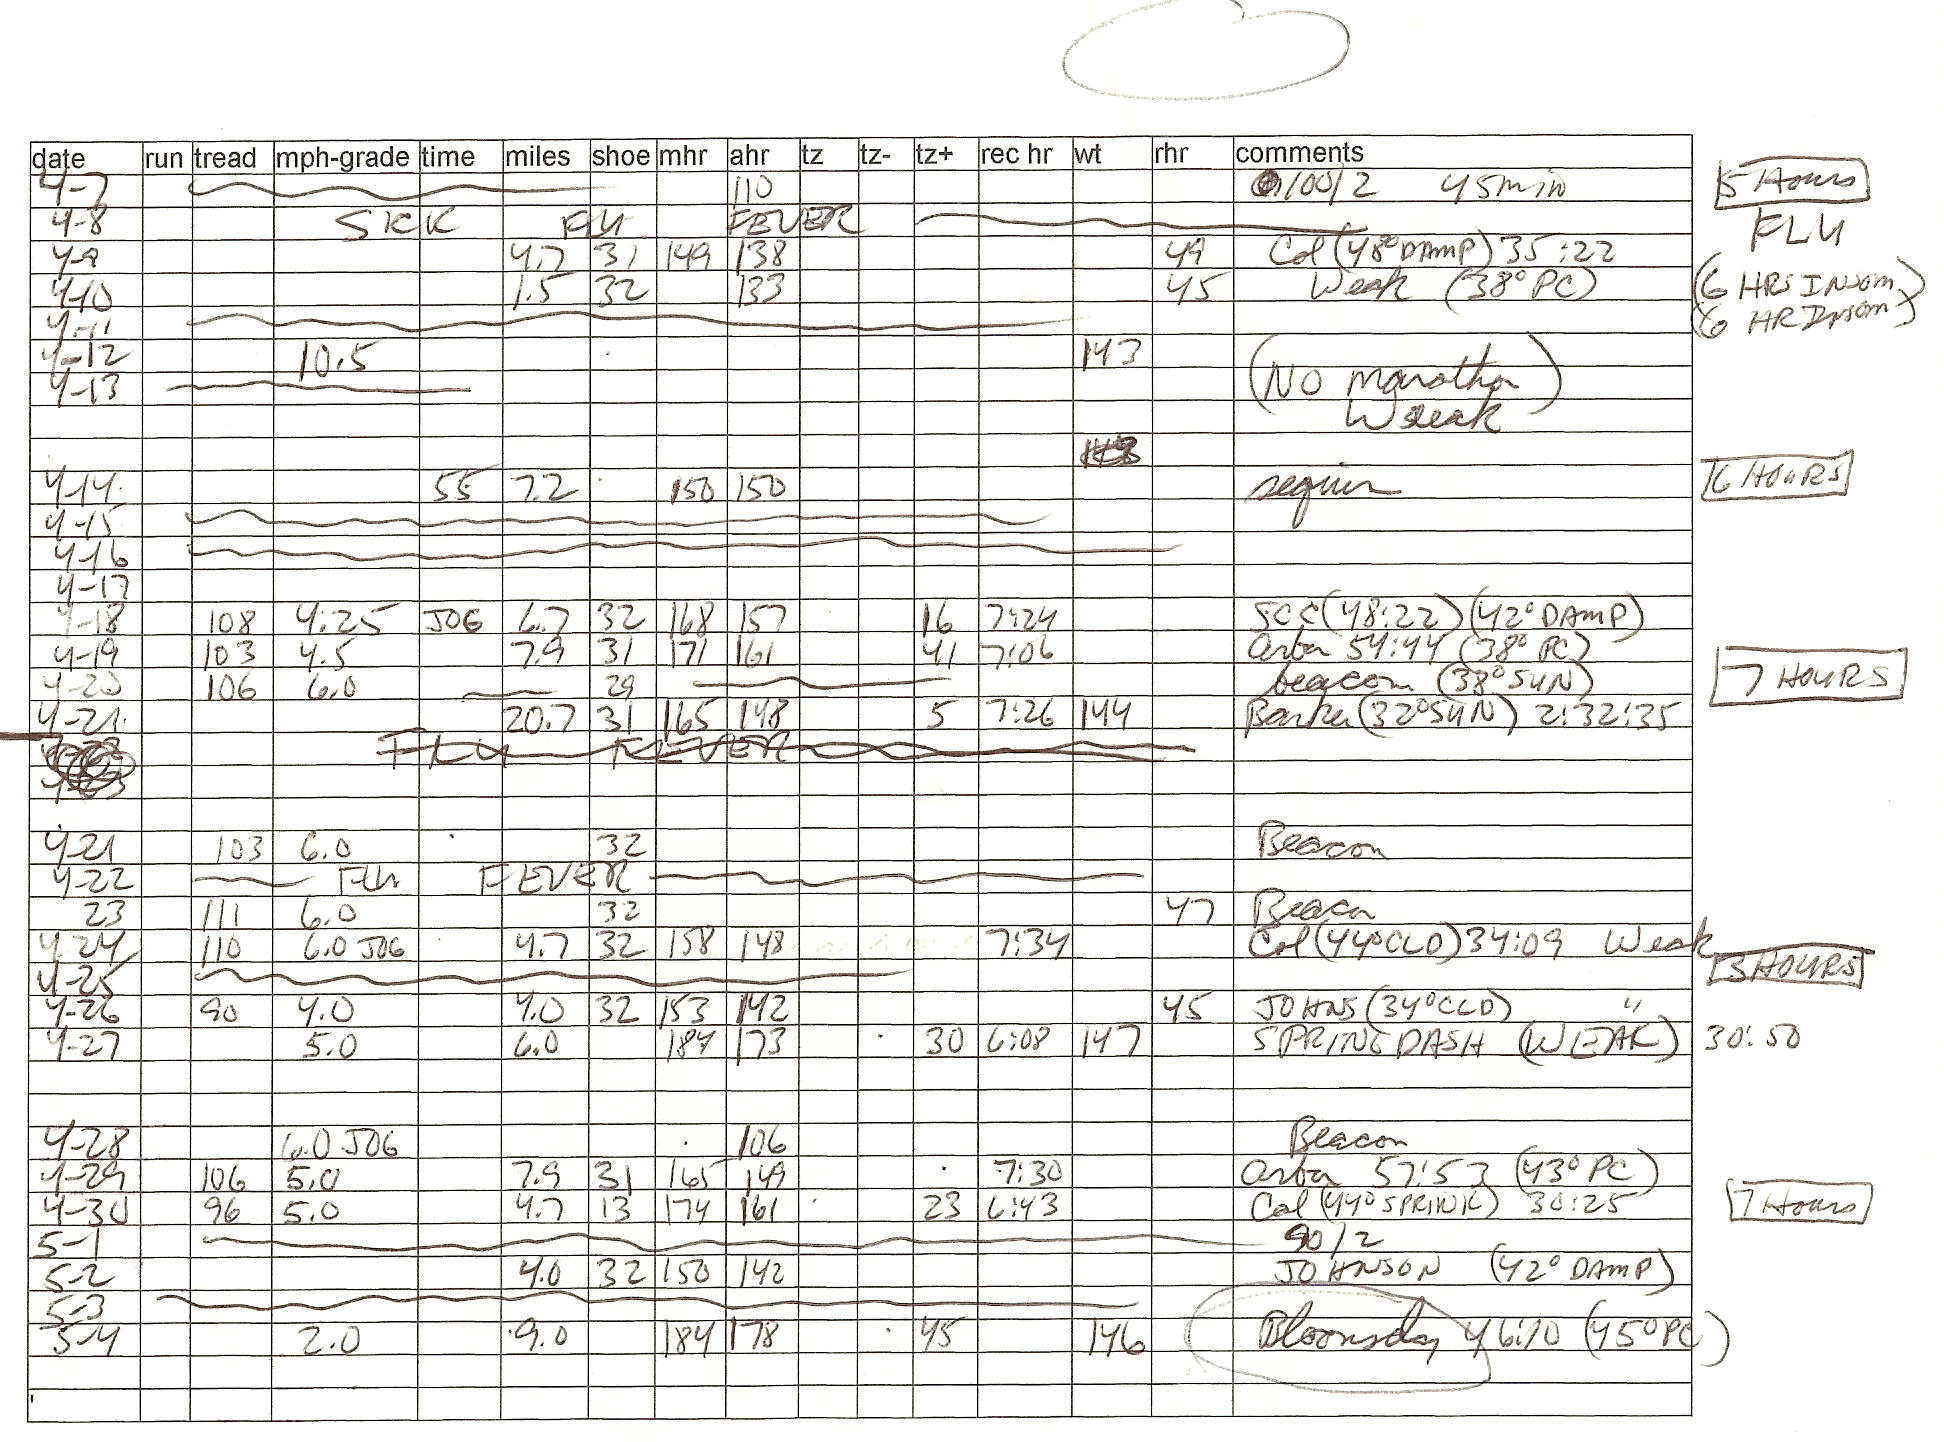 date run tread mph-grade time miles shoe mhr ahr tz tz- tz+ rec hr wt rhr comments
4-7 110 100/2 45min 5 Hours
4-8 SICK FLU FEVER FLU
4-9 4.7 31 149 138 49 Col (48° DAMP) 35:22
4-10 1.5 32 133 45 Weak (38° PC) (6 HRS INSOM)
4-11 (6 HR INSOM)
4-12 10.5 143
4-13 (NO Marathon)
Weak
4-14 55 7.2 150 150 sequim 6 HOURS
4-15
4-16
4-17
4-18 108 4:25 JOG 6.7 32 168 157 16 7:24 SCC (48:22) (42° DAMP)
4-19 103 4.5 7.9 31 171 161 41 7:06 arbor 54:44 (38° PC)
4-20 106 6.0 29 beacon (38° SUN) 7 HOURS
4-21 20.7 31 165 148 5 7:26 144 Barker (32° SUN) 2:32:35
FLU FEVER
4-21 103 6.0 32 Beacon
4-22 Flu FEVER
23 111 6.0 32 47 Beacon
4-24 110 6.0 JOG 4.7 32 158 148 7:34 Col (44° CLD) 34:09 Weak
4-25 3 HOURS
4-26 90 4.0 4.0 32 153 142 45 JOHNS (34° CLD) "
4-27 5.0 6.0 184 173 30 6:08 147 SPRING DASH (WEAK) 30:50
4-28 6.0 JOG 106 Beacon
4-29 106 5.0 7.9 31 165 149 7:30 arbor 57:53 (43° PC)
4-30 96 5.0 4.7 13 174 161 23 6:43 Col (44° SPRINK) 30:25 7 Hours
5-1 90/2
5-2 4.0 32 150 142 JOHNSON (42° DAMP)
5-3
5-4 2.0 9.0 184 178 45 146 Bloomsday 46:10 (45° PC)